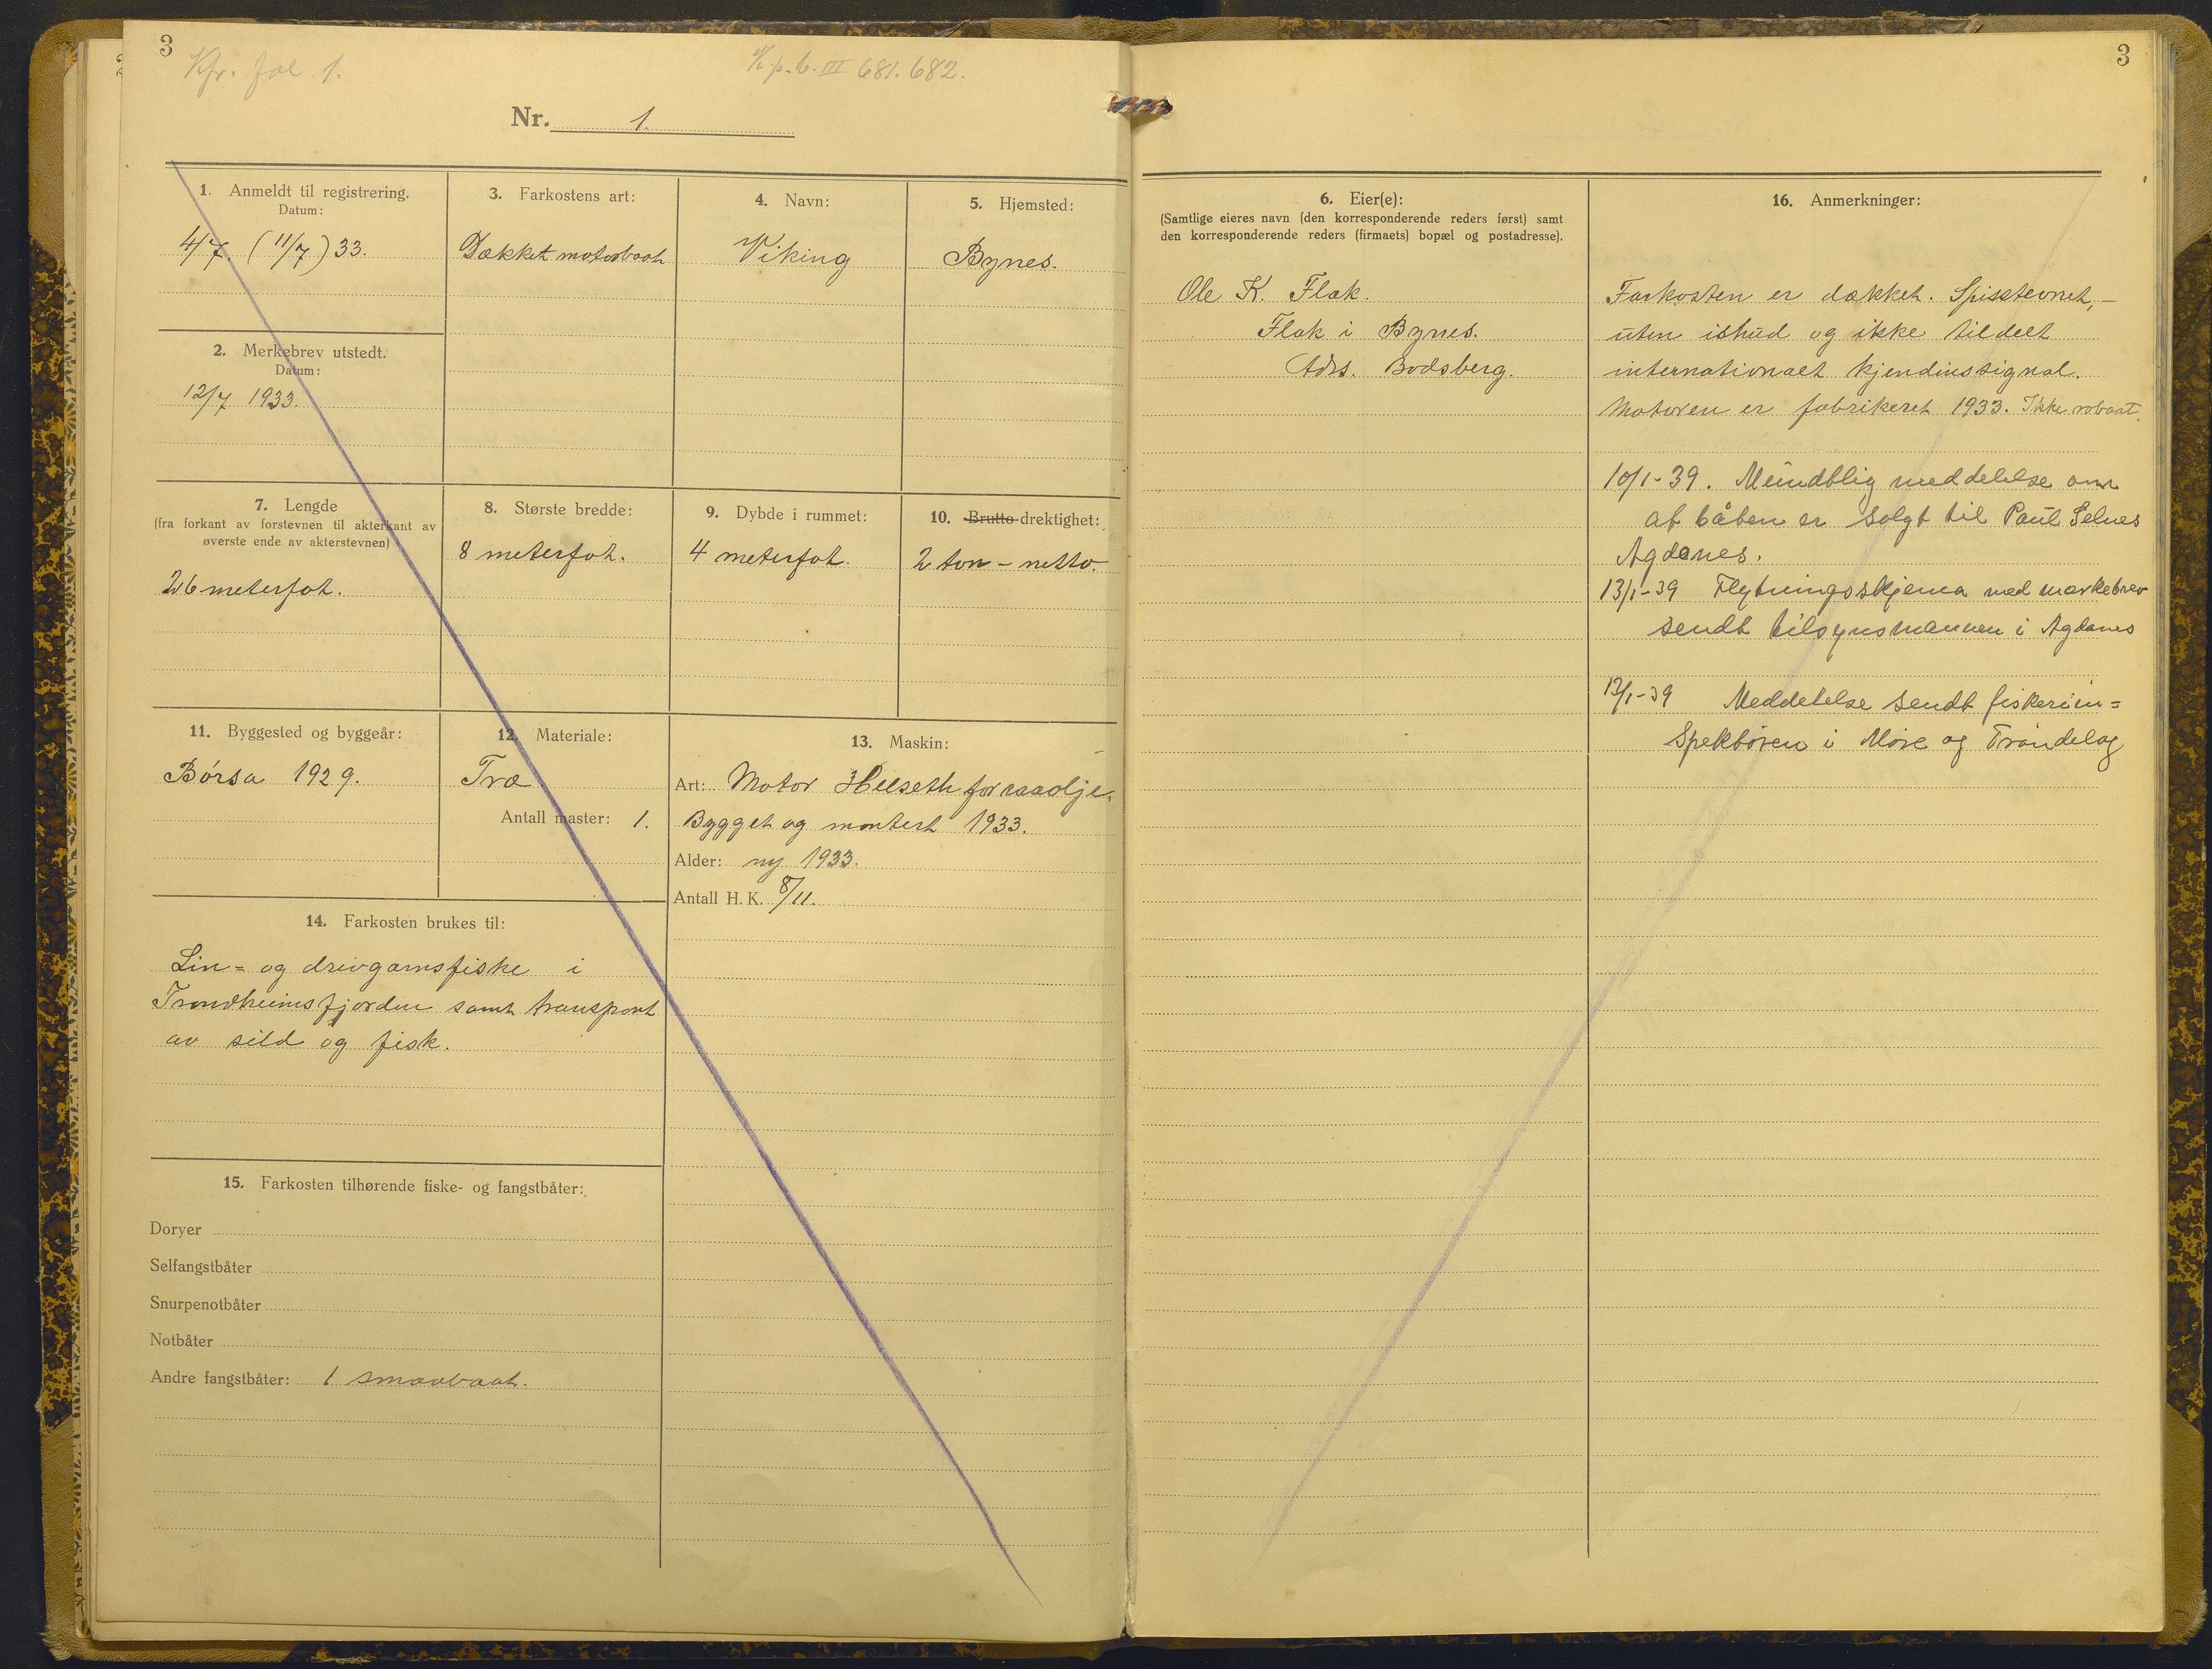 3
Kfr. fol. 1.
K.p.b. III 681. 682.
Nr. 1.
1. Anmeldt til registrering.
Datum:
4/7. (11/7) 33.
2. Merkebrev utstedt.
Datum:
12/7 1933.
3. Farkostens art:
Dækket motorbaat
4. Navn:
Viking
5. Hjemsted:
Bynes.
7. Lengde
(fra forkant av forstevnen til akterkant av
øverste ende av akterstevnen)
26 meterfot.
8. Største bredde:
8 meterfot.
9. Dybde i rummet:
4 meterfot.
10. Brutto-drektighet:
2 ton - netto.
11. Byggested og byggeår:
Børsa 1929.
12. Materiale:
Træ
Antall master: 1.
13. Maskin:
Art: Motor Helseth for raaolje.
Bygget og montert 1933.
Alder: ny 1933.
Antall H. K. 8/11.
14. Farkosten brukes til:
Lin- og drivgarnsfiske i
Trondheimsfjorden samt transport
av sild og fisk.
15. Farkosten tilhørende fiske- og fangstbåter:
Doryer
Selfangstbåter
Snurpenotbåter
Notbåter
Andre fangstbåter: 1 smaabaat.
3
6. Eier(e):
(Samtlige eieres navn (den korresponderende reders først) samt
den korresponderende reders (firmaets) bopæl og postadresse).
Ole K. Flak.
Flak i Bynes.
Adrs. Bodsberg.
16. Anmerkninger:
Farkosten er dækket. Spisstevnet, -
uten ishud og ikke tildelt
internationalt kjendinssignal.
Motoren er fabrikeret 1933. Ikke robaat.
10/1-39. Mundtlig meddelelse om
at båten er solgt til Paul Selnes
Agdenes.
13/1-39 Flytningsskjema med merkebrev
sendt tilsynsmannen i Agdanes
13/1-39 Meddelelse sendt fiskeriin=
spektøren i Møre og Trøndelag